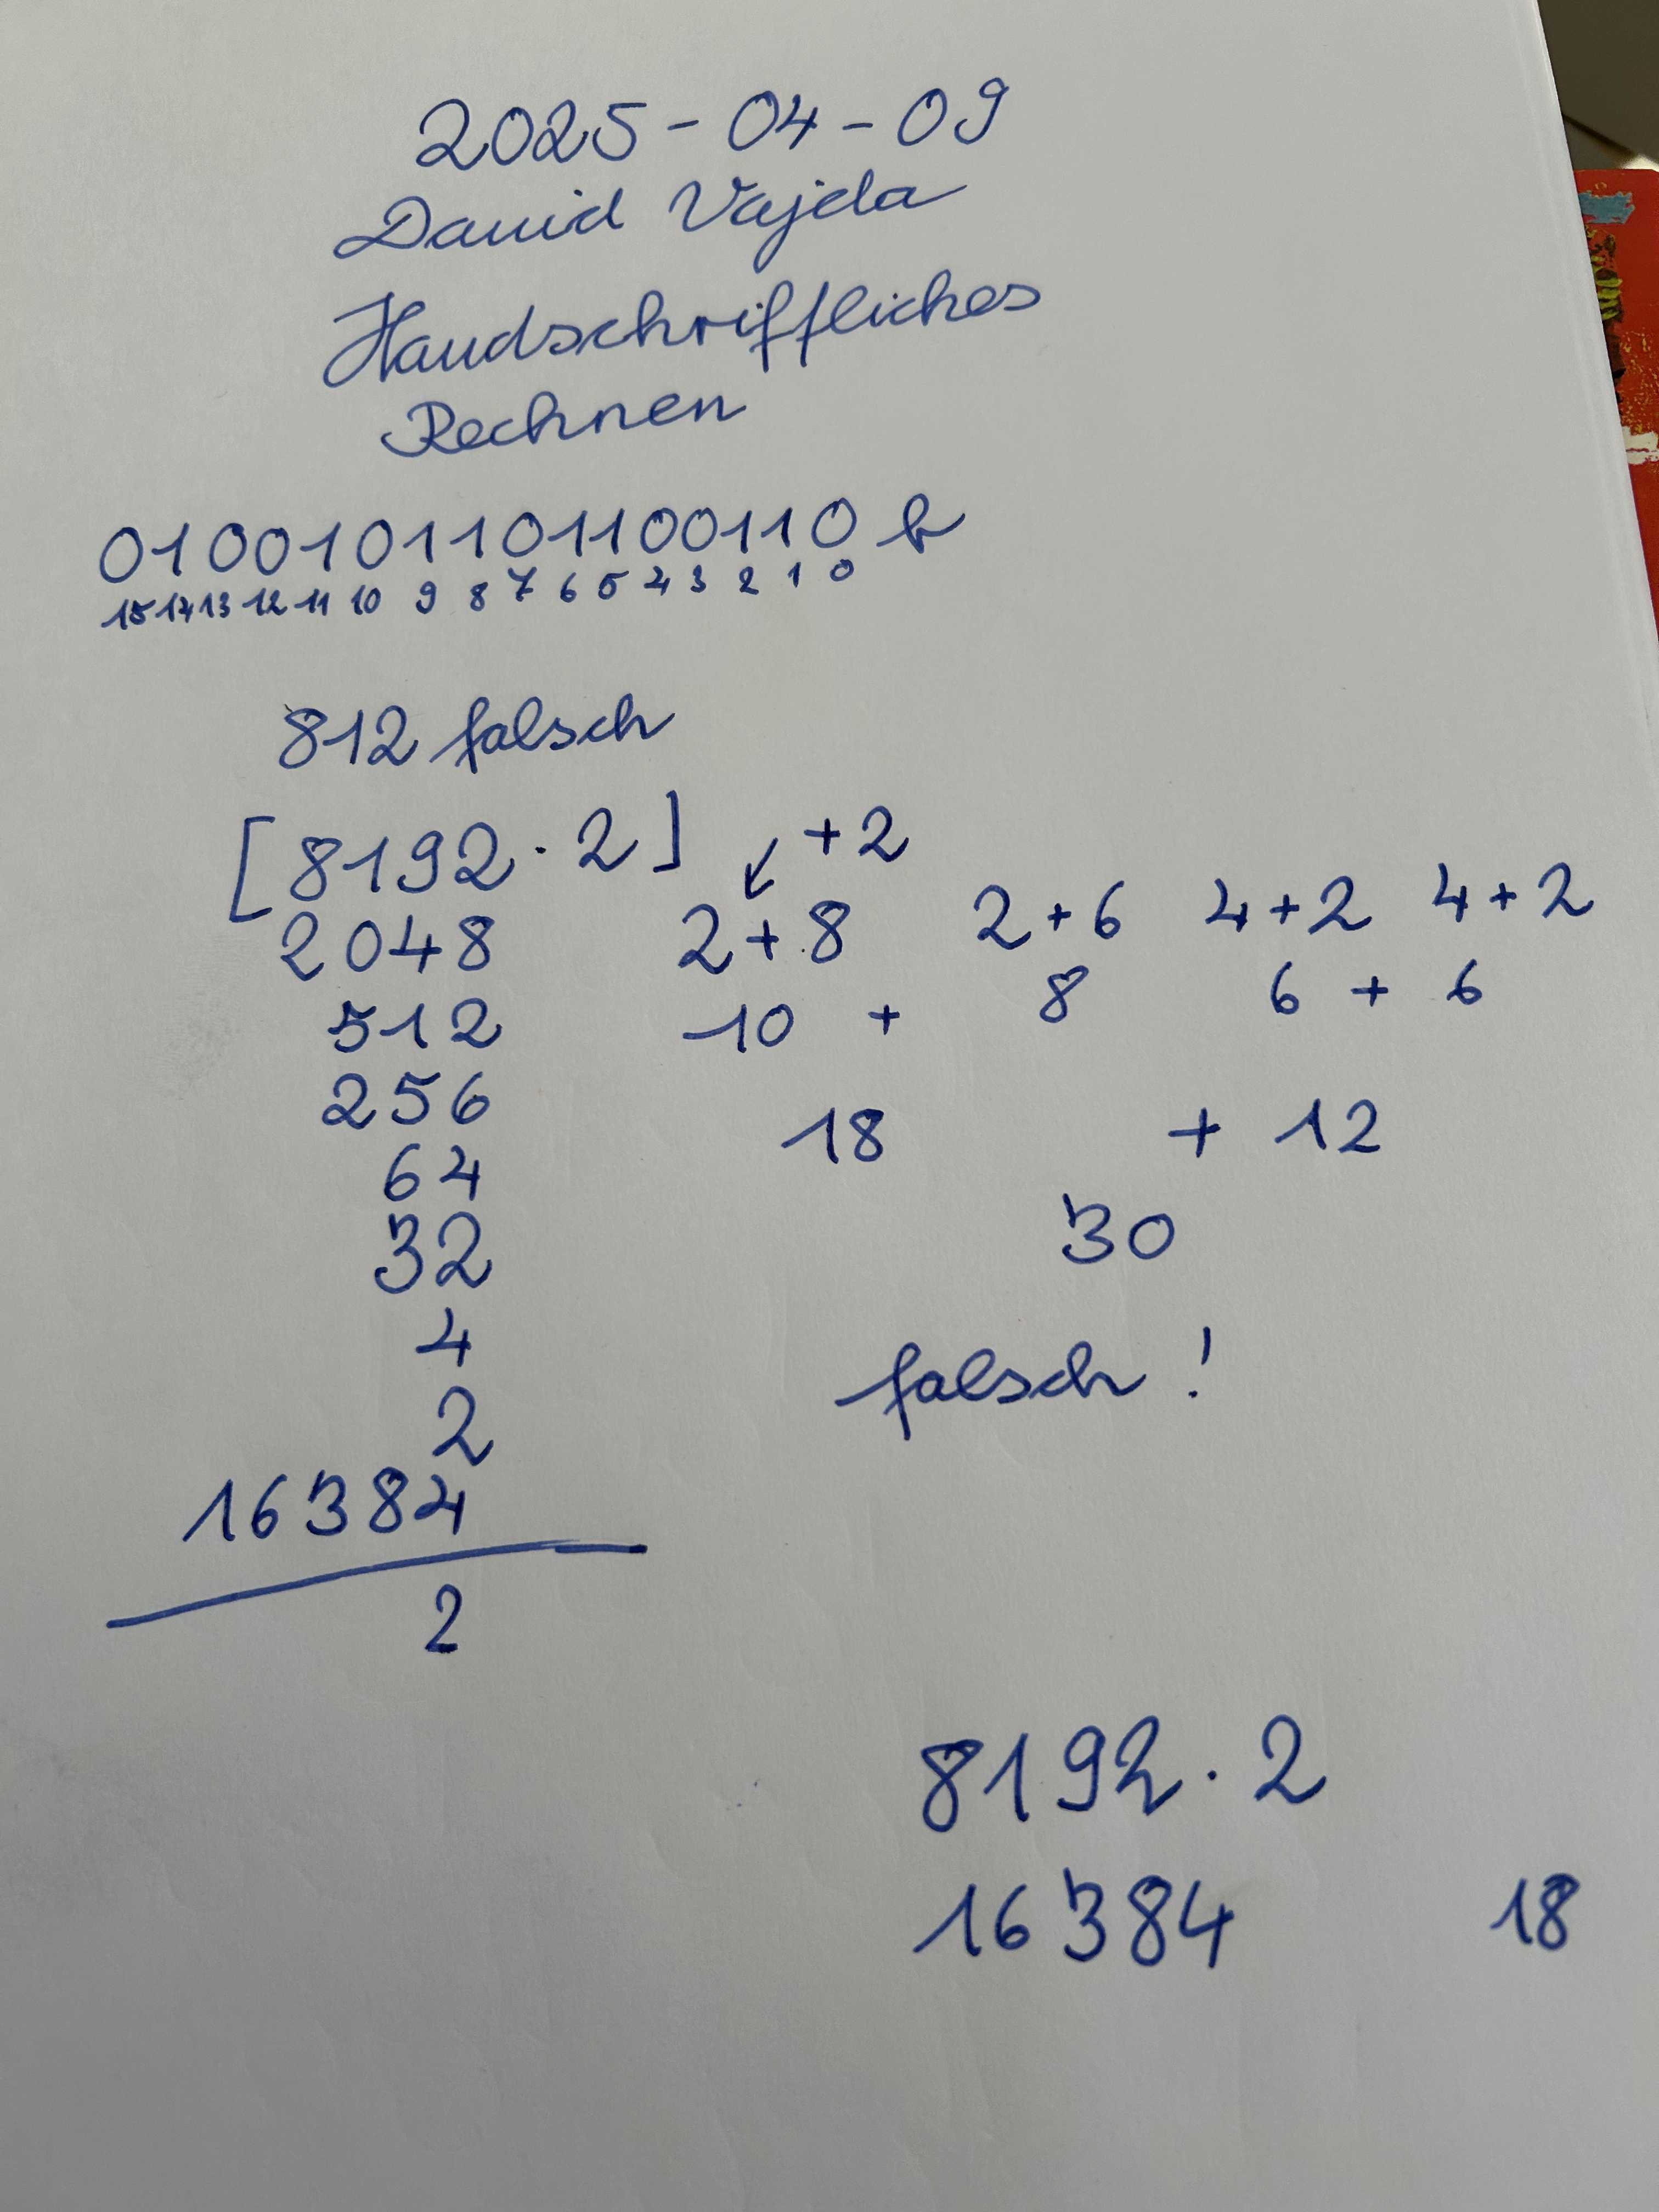 2025-04-09
David Vajda
Handschriftliches
Rechnen
0100101101100110 b
15 14 13 12 11 10 9 8 7 6 5 4 3 2 1 0
812 falsch
[8192 · 2]
2048
512
256
64
32
4
2
16384
2
+2
↙
2+8 2+6 4+2 4+2
10 + 8 6 + 6
18 + 12
30
falsch!
8192 · 2
16384 18